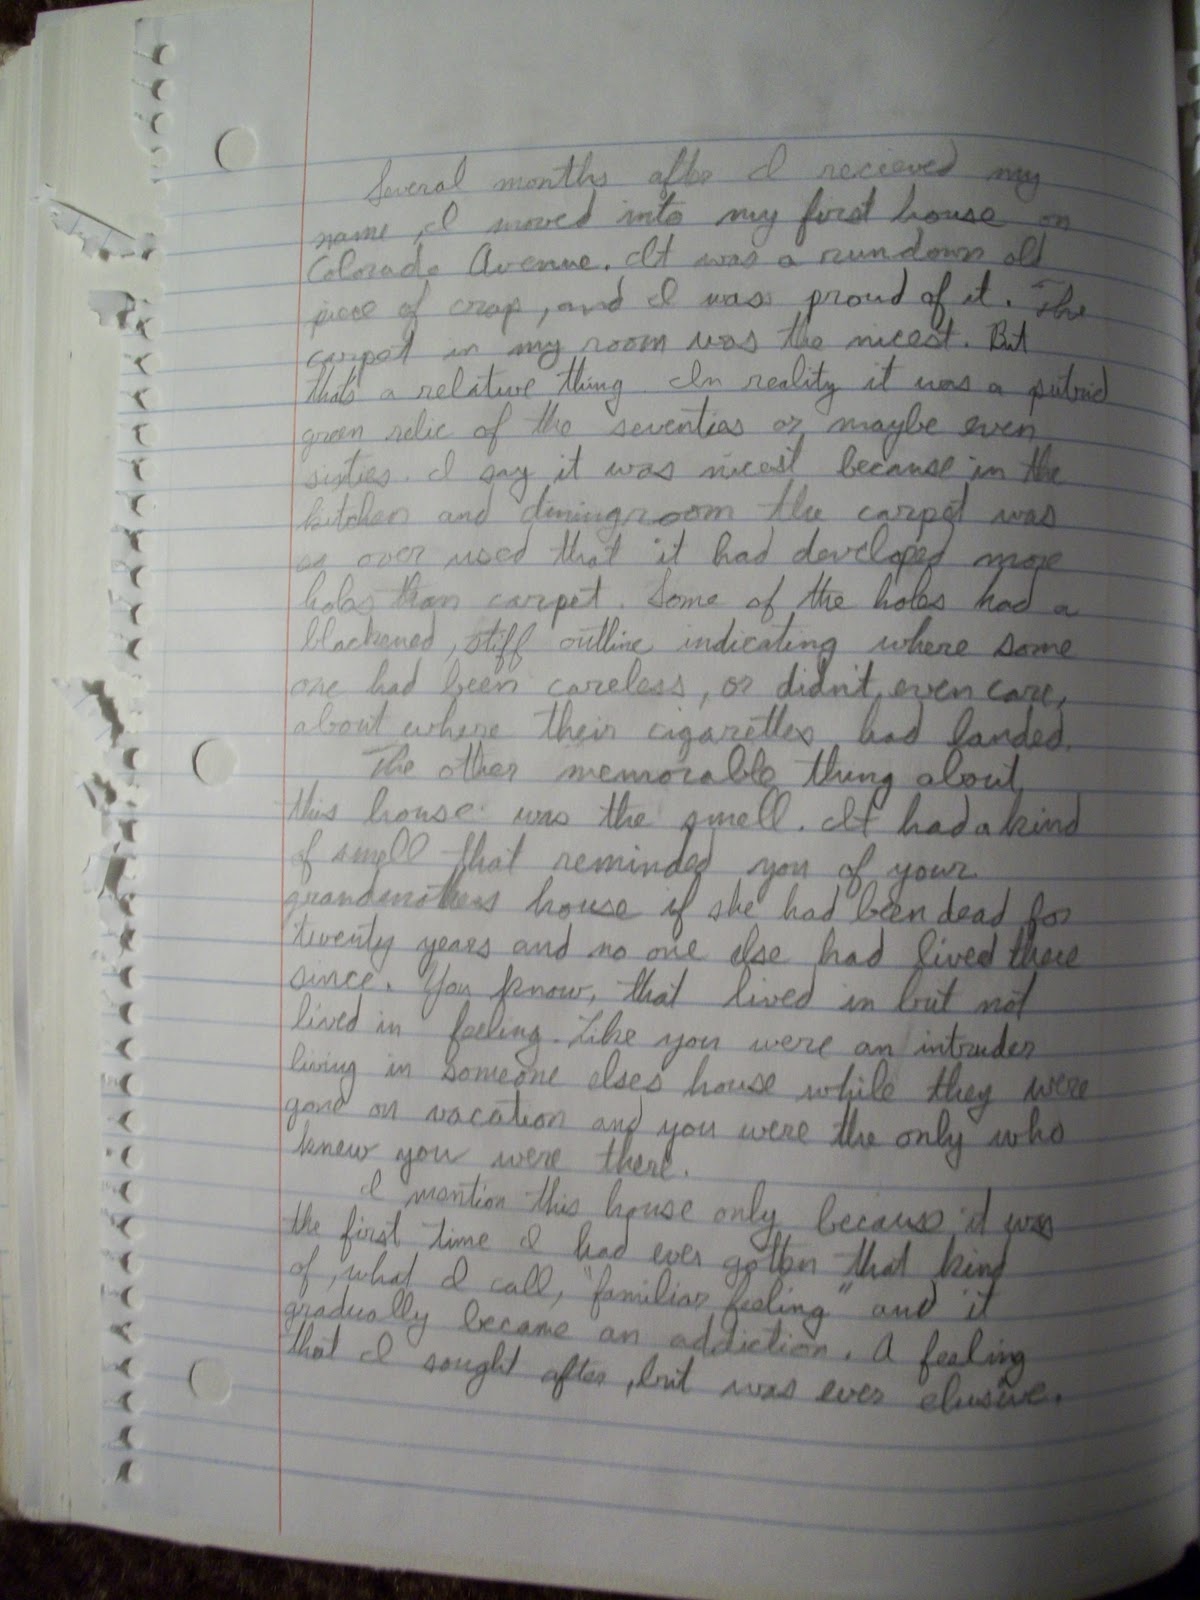 Several months after I recieved my
name, I moved into my first house on
Colorado Avenue. It was a rundown old
piece of crap, and I was proud of it. The
carpet in my room was the nicest. But
that's a relative thing. In reality it was a putrid
green relic of the seventies or maybe even
sixties. I say it was nicest because in the
kitchen and diningroom the carpet was
so over used that it had developed more
holes than carpet. Some of the holes had a
blackened, stiff outline indicating where some
one had been careless, or didn't even care,
about where their cigarettes had landed.
The other memorable thing about
this house was the smell. It had a kind
of smell that reminded you of your
grandmothers house if she had been dead for
twenty years and no one else had lived there
since. You know, that lived in but not
lived in feeling. Like you were an intruder
living in someone elses house while they were
gone on vacation and you were the only who
knew you were there.
I mention this house only because it was
the first time I had ever gotten that kind
of, what I call, "familiar feeling" and it
gradually became an addiction. A feeling
that I sought after, but was ever elusive.